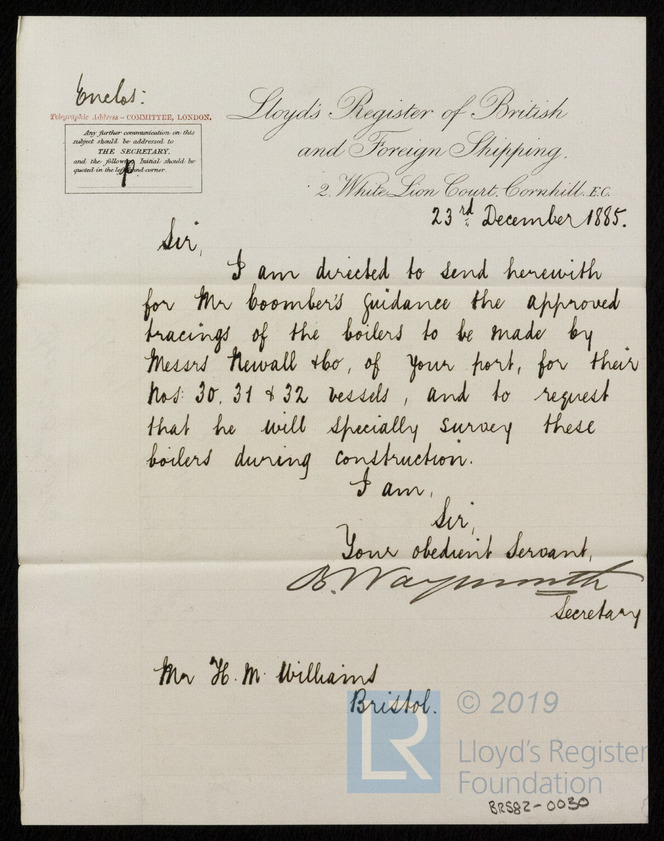 Enclos:
Telegraphic Address - COMMITTEE, LONDON.
Any further communication on this
subject should be addressed to
THE SECRETARY,
and the following Initial should be
quoted in the left hand corner.
P
Lloyd's Register of British
and Foreign Shipping.
2, White Lion Court, Cornhill, E.C.
23rd December 1885.
Sir,
I am directed to send herewith
for Mr Coomber's guidance the approved
tracings of the boilers to be made by
Messrs Newall & Co, of your port, for their
Nos: 30, 31 & 32 vessels, and to request
that he will specially survey these
boilers during construction.
I am,
Sir,
Your obedient Servant,
B. Waymouth
Secretary
Mr H. M. Williams
Bristol.
LR
© 2019
Lloyd's Register
Foundation
BRS82-0030